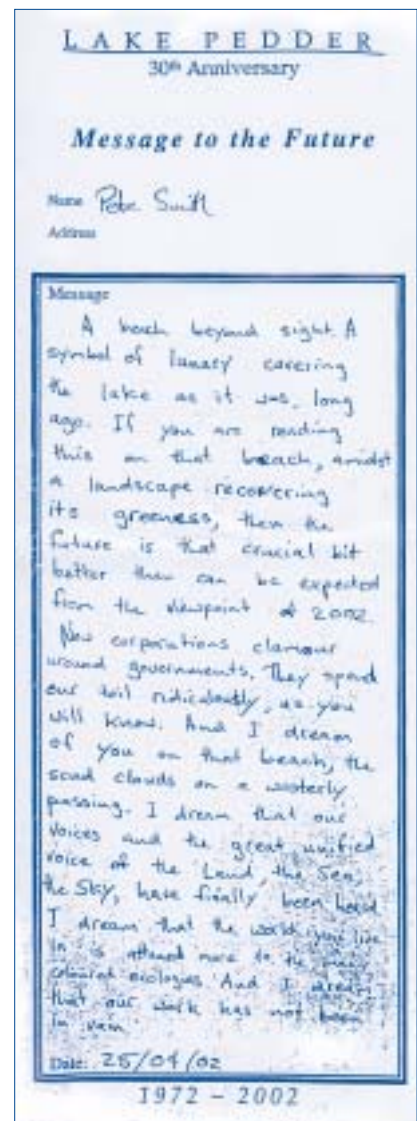 LAKE PEDDER
30th Anniversary
Message to the Future
Name Smith
Address
Message
A beach beyond sight. A
symbol of lunacy covering
the lake as it was, long
ago. If you are reading
this on that beach, amidst
a landscape recovering
its greeness, then the
future is that crucial bit
better then can be expected
from the viewpoint of 2002.
Now corporations clamour
around governments. They spend
our toil ridiculously, as you
will know. And I dream
of you on that beach, the
scud clouds on a westerly
passing. I dream that our
voices and the great unified
voice of the Land, the Sea,
the Sky, have finally been heard
I dream that the world you live
in is attuned more to the
coloured ecologies And I dream
that our work has not been
in vain.
Date: 25/04/02
1972 – 2002